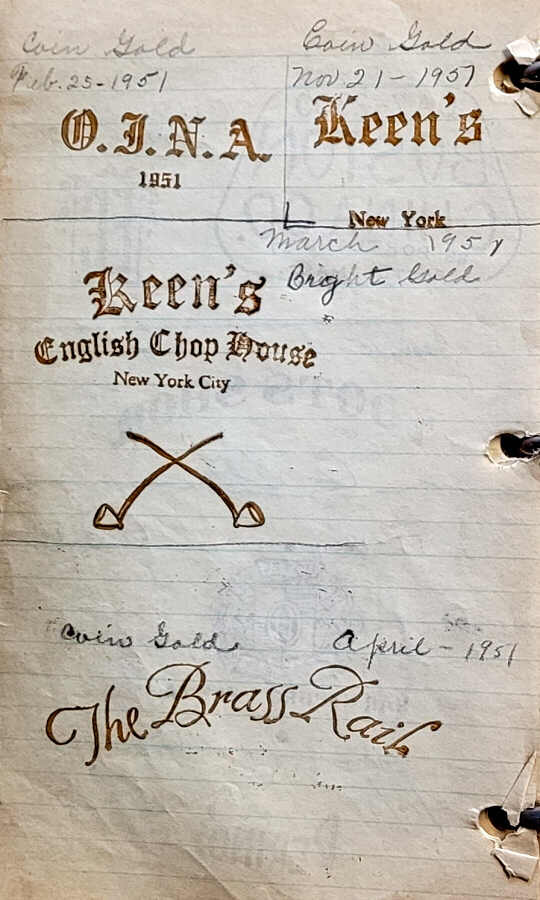 Coin Gold
Feb. 25-1951
O.J.N.A.
1951
Coin Gold
Nov 21-1951
Keen's
New York
March 1951
Bright Gold
Keen's
English Chop House
New York City
Coin Gold
April - 1951
The Brass Rail